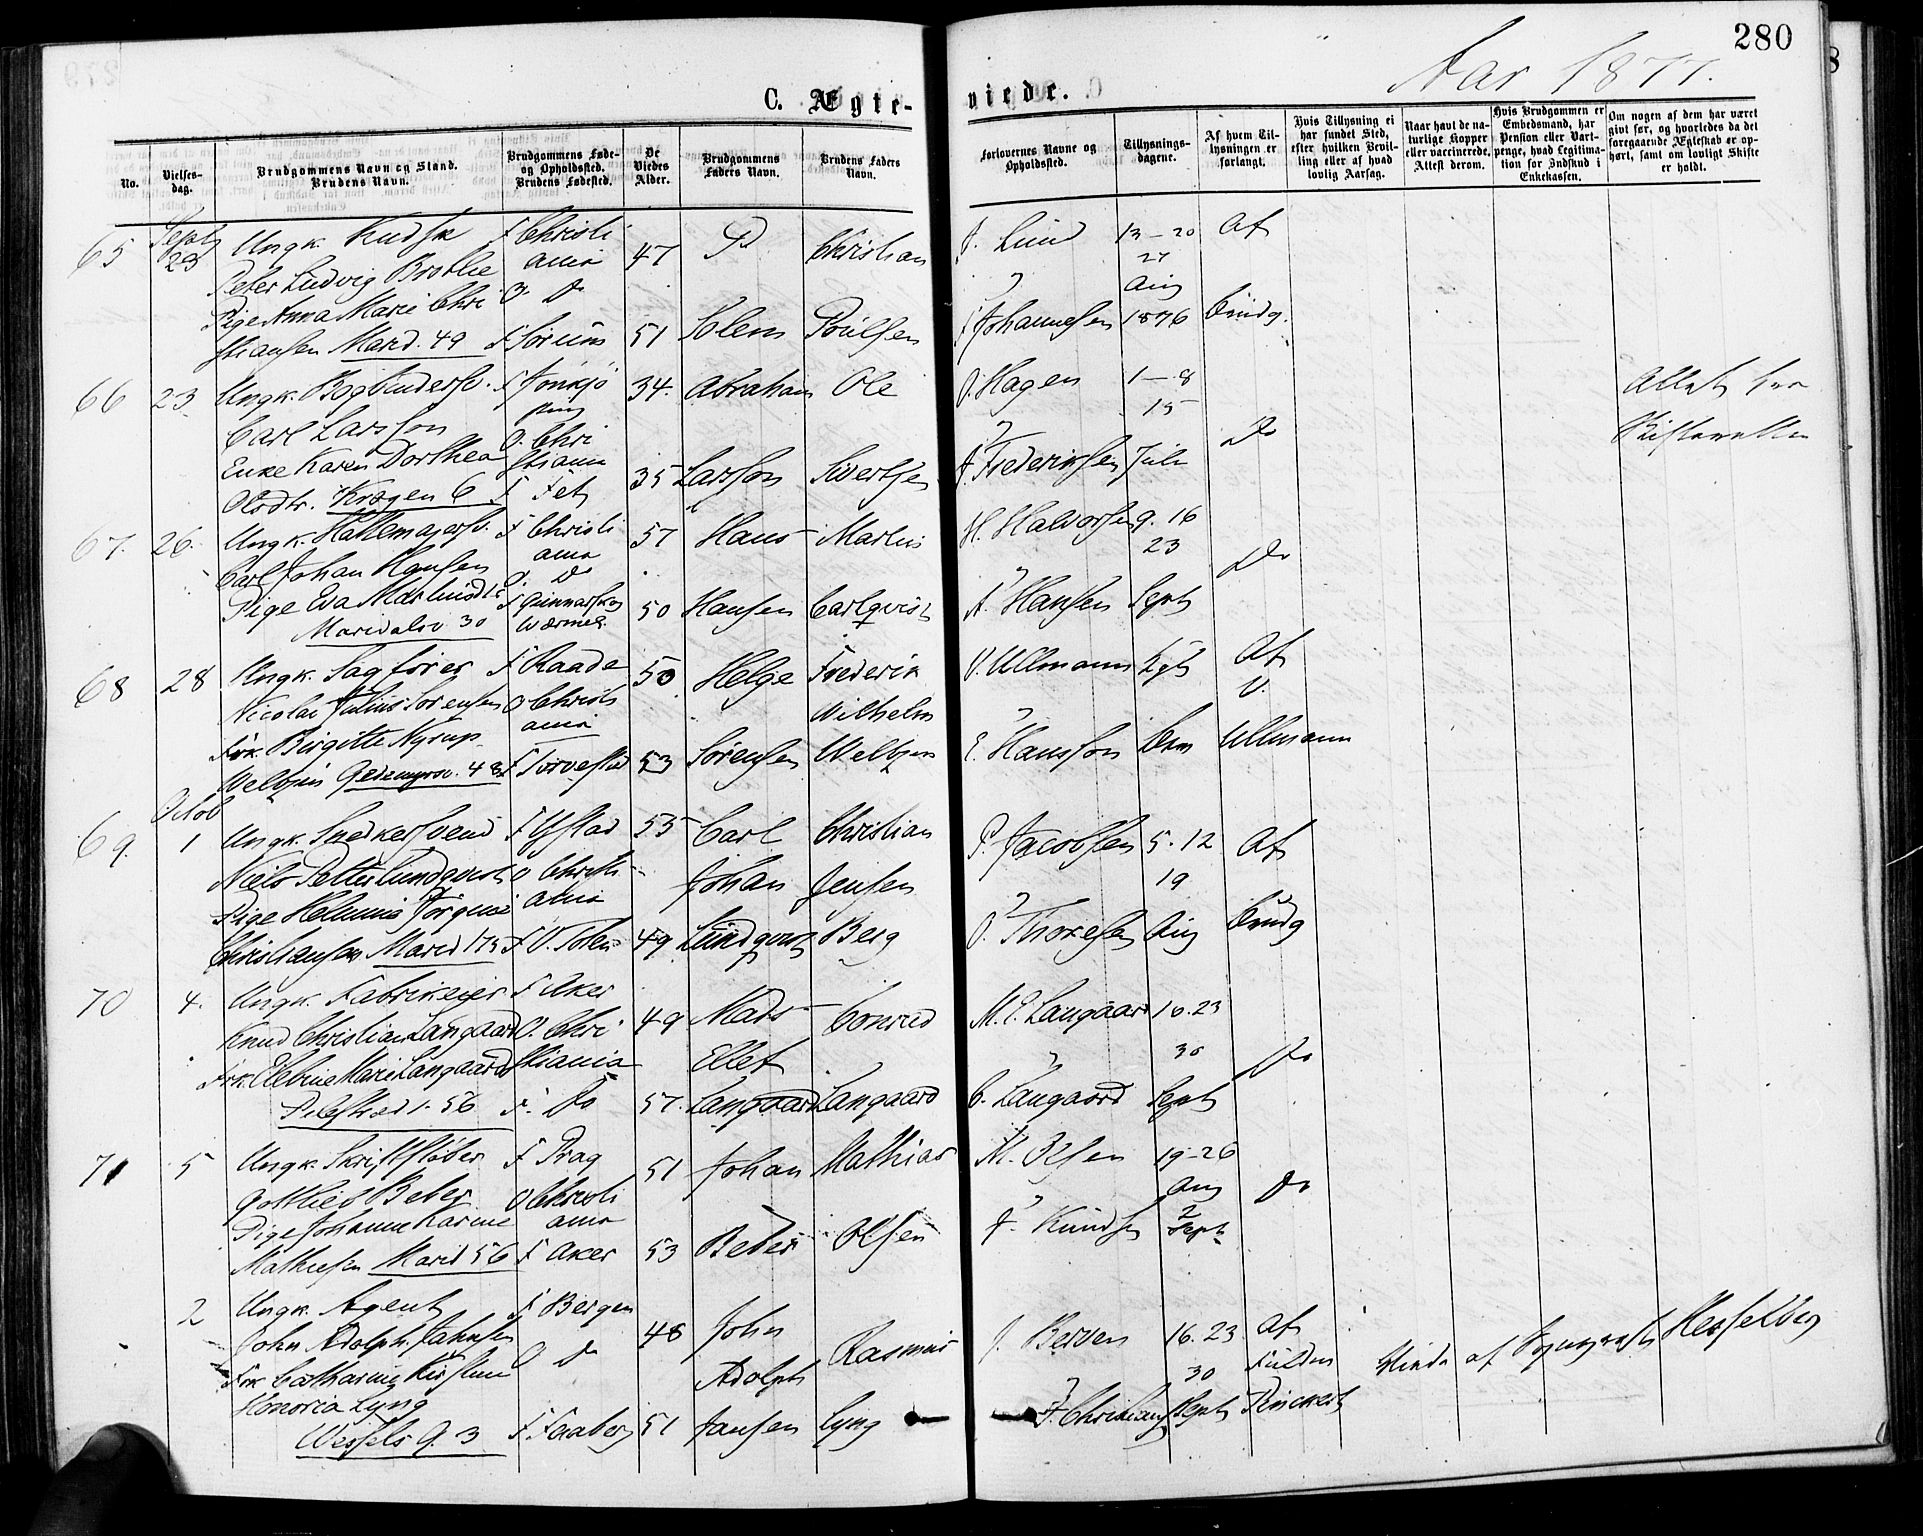 280
Aar 1877.
C. Ægte-
viede.
No.
Vielses-
dag.
Brudgommens Navn og Stand.
Brudens Navn.
Brudgommens Føde-
og Opholdssted.
Brudens Fødested.
De
Viedes
Alder.
Brudgommens
Faders Navn.
Brudens Faders
Navn.
Forlovernes Navne og
Opholdssted.
Tillysnings-
dagene.
Af hvem Til-
lysningen er
forlangt.
Hvis Tillysning ei
har fundet Sted,
efter hvilken Bevil-
ling eller af hvad
lovlig Aarsag.
Naar havt de na-
turlige Kopper
eller vaccinerede.
Attest derom.
Hvis Brudgommen er
Embedsmand, har
Pension eller Vart-
penge, hvad Legitima-
tion for Indskud i
Enkekassen.
Om nogen af dem har været
givt før, og hvorledes da det
foregaaende Ægteskab er op-
hørt, samt om lovligt Skifte
er holdt.
65 Septb 23 Ungk. Kudsk F Christi 47 P Christian J. Lund 13-20 Af
Peter Ludvig ania 27
Pige Anna Marie Chri O. Do Aug
stiansen Marid. 49 F Sørum 51 Solem Poulsen Johannesen 1876 Brudg.
66 23 Ungk. Bogbindersv. F Jønkjø 34. Abraham Ole O. Hagen 1-8 Attest fra
Carl Larsson ping 15 Skifteretten
Enke Karen Dorthea O. Chri Do
Olsdtr. Krogen 6 stiania F Fet 35 Larsson Sivertsen J Frederiksen Juli
67. 26. Ungk. Hattemagersv. F Christi 57 Hans Martin H. Halvorsen 9. 16
Carl Johan Hansen ania O. Do 23 Do
Pige Eva F Gunnarskog 50 Hansen Carlqvist A. Hansen Sept
Maridalsv 30 Wærmel.
68 28 Ungk. Sagfører F Raade 50 Helge Frederik V. Ullmann Af
Nicolai Julius Sørensen O Christi Wilhelm V.
Frk. Birgitte Nyrup ania
Welbjen 48 F Torvestad 53 Sørensen Welbjen E. Hansson Ullmann
Octob
69. 1 Ungk. Snedkersvend F Ystad 55 Carl Christian P. Jacobsen 5. 12 Af
Niels Petter Lundqvist O Christi Johan Jensen 19
Pige ania
Christiansen Marid 175 F V. Toten 49 Lundqvist Berg O. Thoresen Aug Brudg
70 4. Ungk. Fabrikeier F Aker 49 Mads Conrad M. E. Langaard 16. 23
Knud Christian Langaard O. Chri Ellef 30 Do
Frk. Marie Langaard stiania
Pilestræd. 56 F. Do 57. Langaard Langaard C. Langaard Sept
71 5 Ungk. Skriftstøber F Prag 51 Johan Mathias M. Olsen 19-26
Gottlieb Beber O Christi Aug Do
Pige Johanne Karine ania 2
Mathiesen Marid 56 F Aker 53 Beber Olsen J. Knudsen Sept
2 Ungk. Agent F Bergen 48 John Rasmus J. Berven 16. 23 Af
John Adolph O Do Adolph 30 af Hesselberg
Frk Catharine Kirstine
Honoria Lyng
Wessels G. 3 F. Faaberg 51 Jansen Lyng Sept